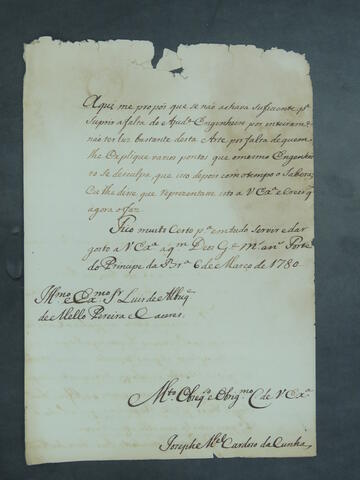 Aque me propós que se não achava suficiente p.ª
Suprir a falta do Ajud.e Engenheiro por inteiram.e
não ter luz bastante desta Arte por falta de quem
lhe Explique varios pontos que o mesmo Engenhei
ro se desculpa, que isto depois com o tempo o Saberá;
Eu lhe disse que representase isto a V Ex.ª e Creio q
agora o faz.
Fico muito Certo p.ª em tudo servir e dar
gosto a V Ex.ª a q.m Deos G.e m.s an.s Forte
do Principe da Br.ª 6 de Março de 1780
Ill.mo e Ex.mo S.r Luis de Albuq.
de Mello Pereira e Caceres.
M.to Obseq.o e Obrig.mo C. de V Ex.ª
Josephe M.el Cardoso da Cunha